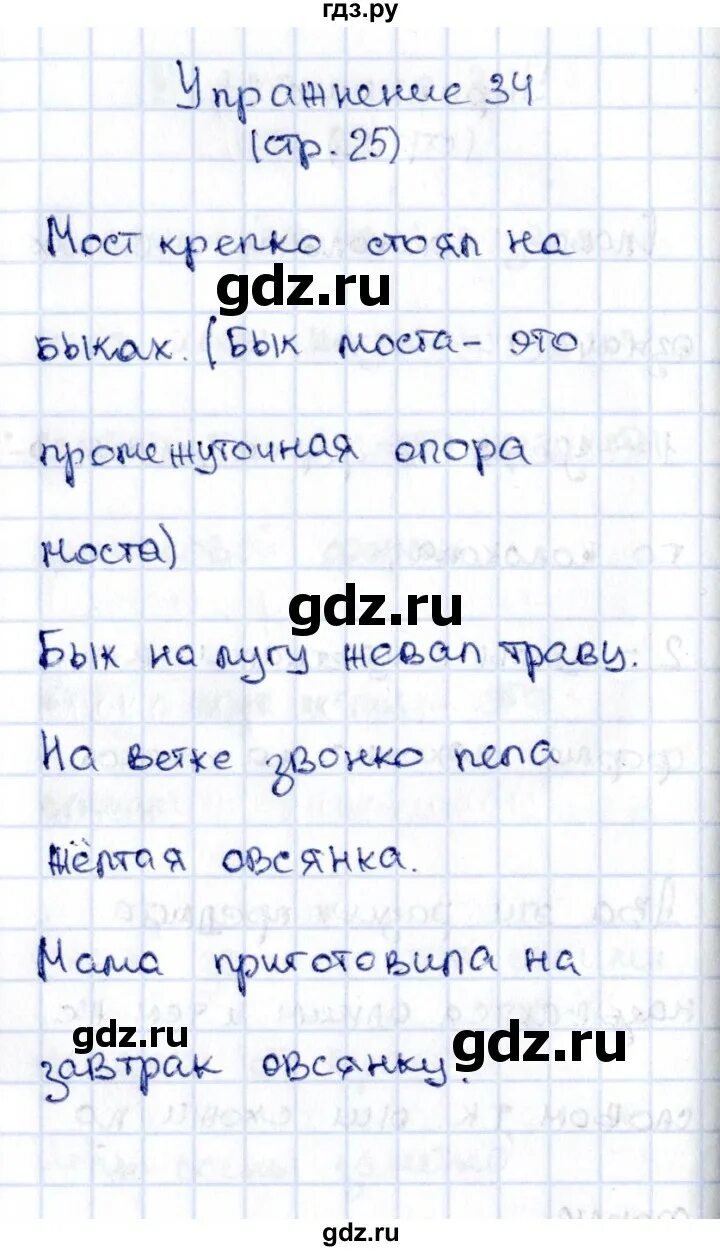 гдз.ру
Упражнение 34
(стр. 25)
Мост крепко стоял на
gdz.ru
быках. (Бык моста - это
промежуточная опора
моста)
gdz.ru
Бык на лугу жевал траву.
На ветке звонко пела
жёлтая овсянка.
Мама приготовила на
gdz.ru
gdz.ru
завтрак овсянку.
gdz.ru